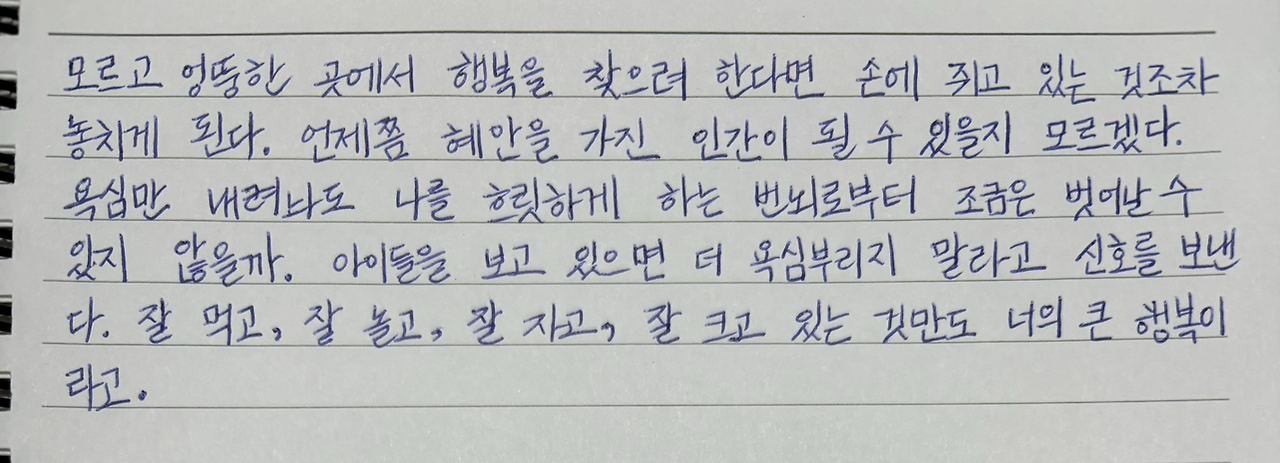 모르고 엉뚱한 곳에서 행복을 찾으려 한다면 손에 쥐고 있는 것조차
놓치게 된다. 언제쯤 혜안을 가진 인간이 될 수 있을지 모르겠다.
욕심만 내려놔도 나를 흐릿하게 하는 번뇌로부터 조금은 벗어날 수
있지 않을까. 아이들을 보고 있으면 더 욕심부리지 말라고 신호를 보낸
다. 잘 먹고, 잘 놀고, 잘 자고, 잘 크고 있는 것만도 너의 큰 행복이
라고.